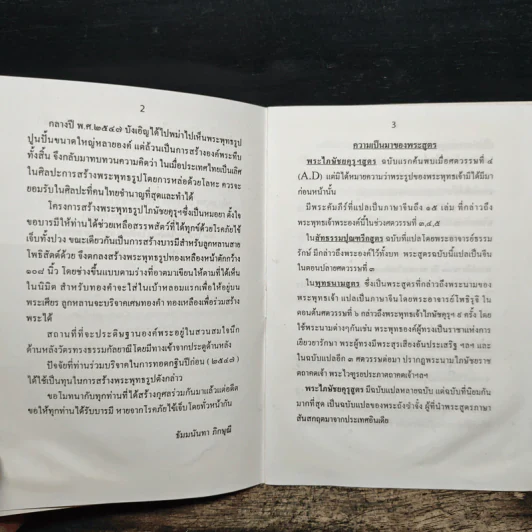 2
กลางปี พ.ศ.๒๕๔๗ บังเอิญได้ไปพม่าไปเห็นพระพุทธรูป
ปูนปั้นขนาดใหญ่หลายองค์ แต่ล้วนเป็นการสร้างองค์พระทึบ
ทั้งสิ้น จึงกลับมาทบทวนความคิดว่า ในเมื่อประเทศไทยเป็นเลิศ
ในศิลปะการสร้างพระพุทธรูปโดยการหล่อด้วยโลหะ ควรจะ
ยอมรับในศิลปะที่คนไทยชำนาญที่สุดและทำได้
โครงการสร้างพระพุทธรูปไภษัชยคุรุฯซึ่งเป็นหมอยา ตั้งใจ
ขอบารมีให้ท่านได้ช่วยเหลือสรรพสัตว์ที่ได้ทุกข์ด้วยโรคภัยไข้
เจ็บทั้งปวง ขณะเดียวกันเป็นการสร้างบารมีสำหรับลูกหลานสาย
โพธิสัตต์ด้วย จึงตกลงสร้างพระพุทธรูปทองเหลืองหน้าตักกว้าง
๑๐๙ นิ้ว โดยช่างขึ้นแบบตามร่างที่อาตมาเขียนให้ตามที่ได้เห็น
ในนิมิต สำหรับทองคำจะใส่ในเบ้าหลอมแรกเพื่อให้อยู่บน
พระเศียร ลูกหลานจะบริจาคเศษทองคำ ทองเหลืองเพื่อร่วมสร้าง
พระได้
สถานที่ที่จะประดิษฐานองค์พระอยู่ในสวนสมใจนึก
ด้านหลังวัตรทรงธรรมกัลยาณี โดยมีทางเข้าจากประตูด้านหลัง
ปัจจัยที่ท่านร่วมบริจาคในการทอดกฐินปีก่อน (๒๕๔๗)
ได้ใช้เป็นทุนในการสร้างพระพุทธรูปดังกล่าว
ขอโมทนากับทุกท่านที่ได้สร้างกุศลร่วมกันมาแล้วแต่อดีต
ขอให้ทุกท่านได้รับบารมี หายจากโรคภัยไข้เจ็บโดยทั่วหน้ากัน
ธัมมนันทา ภิกษุณี
3
ความเป็นมาของพระสูตร
พระไภษัชยคุรุฯสูตร ฉบับแรกค้นพบเมื่อศตวรรษที่ ๔
(A.D) แต่มิได้หมายความว่าพระรูปของพระพุทธเจ้ามิได้มีมา
ก่อนหน้านั้น
มีพระคัมภีร์ที่แปลเป็นภาษาจีนถึง ๑๕ เล่ม ที่กล่าวถึง
พระพุทธเจ้าพระองค์นี้ในช่วงศตวรรษที่ ๓,๔,๕
ในสัทธรรมปุณฑริกสูตร ฉบับที่แปลโดยพระอาจารย์ธรรม
รักษ์ มีกล่าวถึงพระองค์ไว้ทั้งบท พระสูตรฉบับนี้แปลเป็นจีน
ในตอนปลายศตวรรษที่ ๓
ในพุทธนามสูตร ซึ่งเป็นพระสูตรที่กล่าวถึงพระนามของ
พระพุทธเจ้า แปลเป็นภาษาจีนโดยพระอาจารย์โพธิรุจิ ใน
ตอนต้นศตวรรษที่ ๖ กล่าวถึงพระพุทธเจ้าไภษัชคุรุฯ ๙ ครั้ง โดย
ใช้พระนามต่างๆกันเช่น พระพุทธองค์ผู้ทรงเป็นราชาแห่งการ
เยียวยารักษา พระผู้ทรงมีพระสุรเสียงอันประเสริฐ ฯลฯ และ
ในฉบับแปลอีก ๓ ศตวรรษต่อมา ปรากฏพระนามไภษัชยราช
ตถาคตเจ้า พระไวฑูรยประภาตถาคตเจ้าฯลฯ
พระไภษัชยคุรุสูตร มีฉบับแปลหลายฉบับ แต่ฉบับที่นิยมกัน
มากที่สุด เป็นฉบับแปลของพระถังซำจั๋ง ผู้ที่นำพระสูตรภาษา
สันสกฤตมาจากประเทศอินเดีย